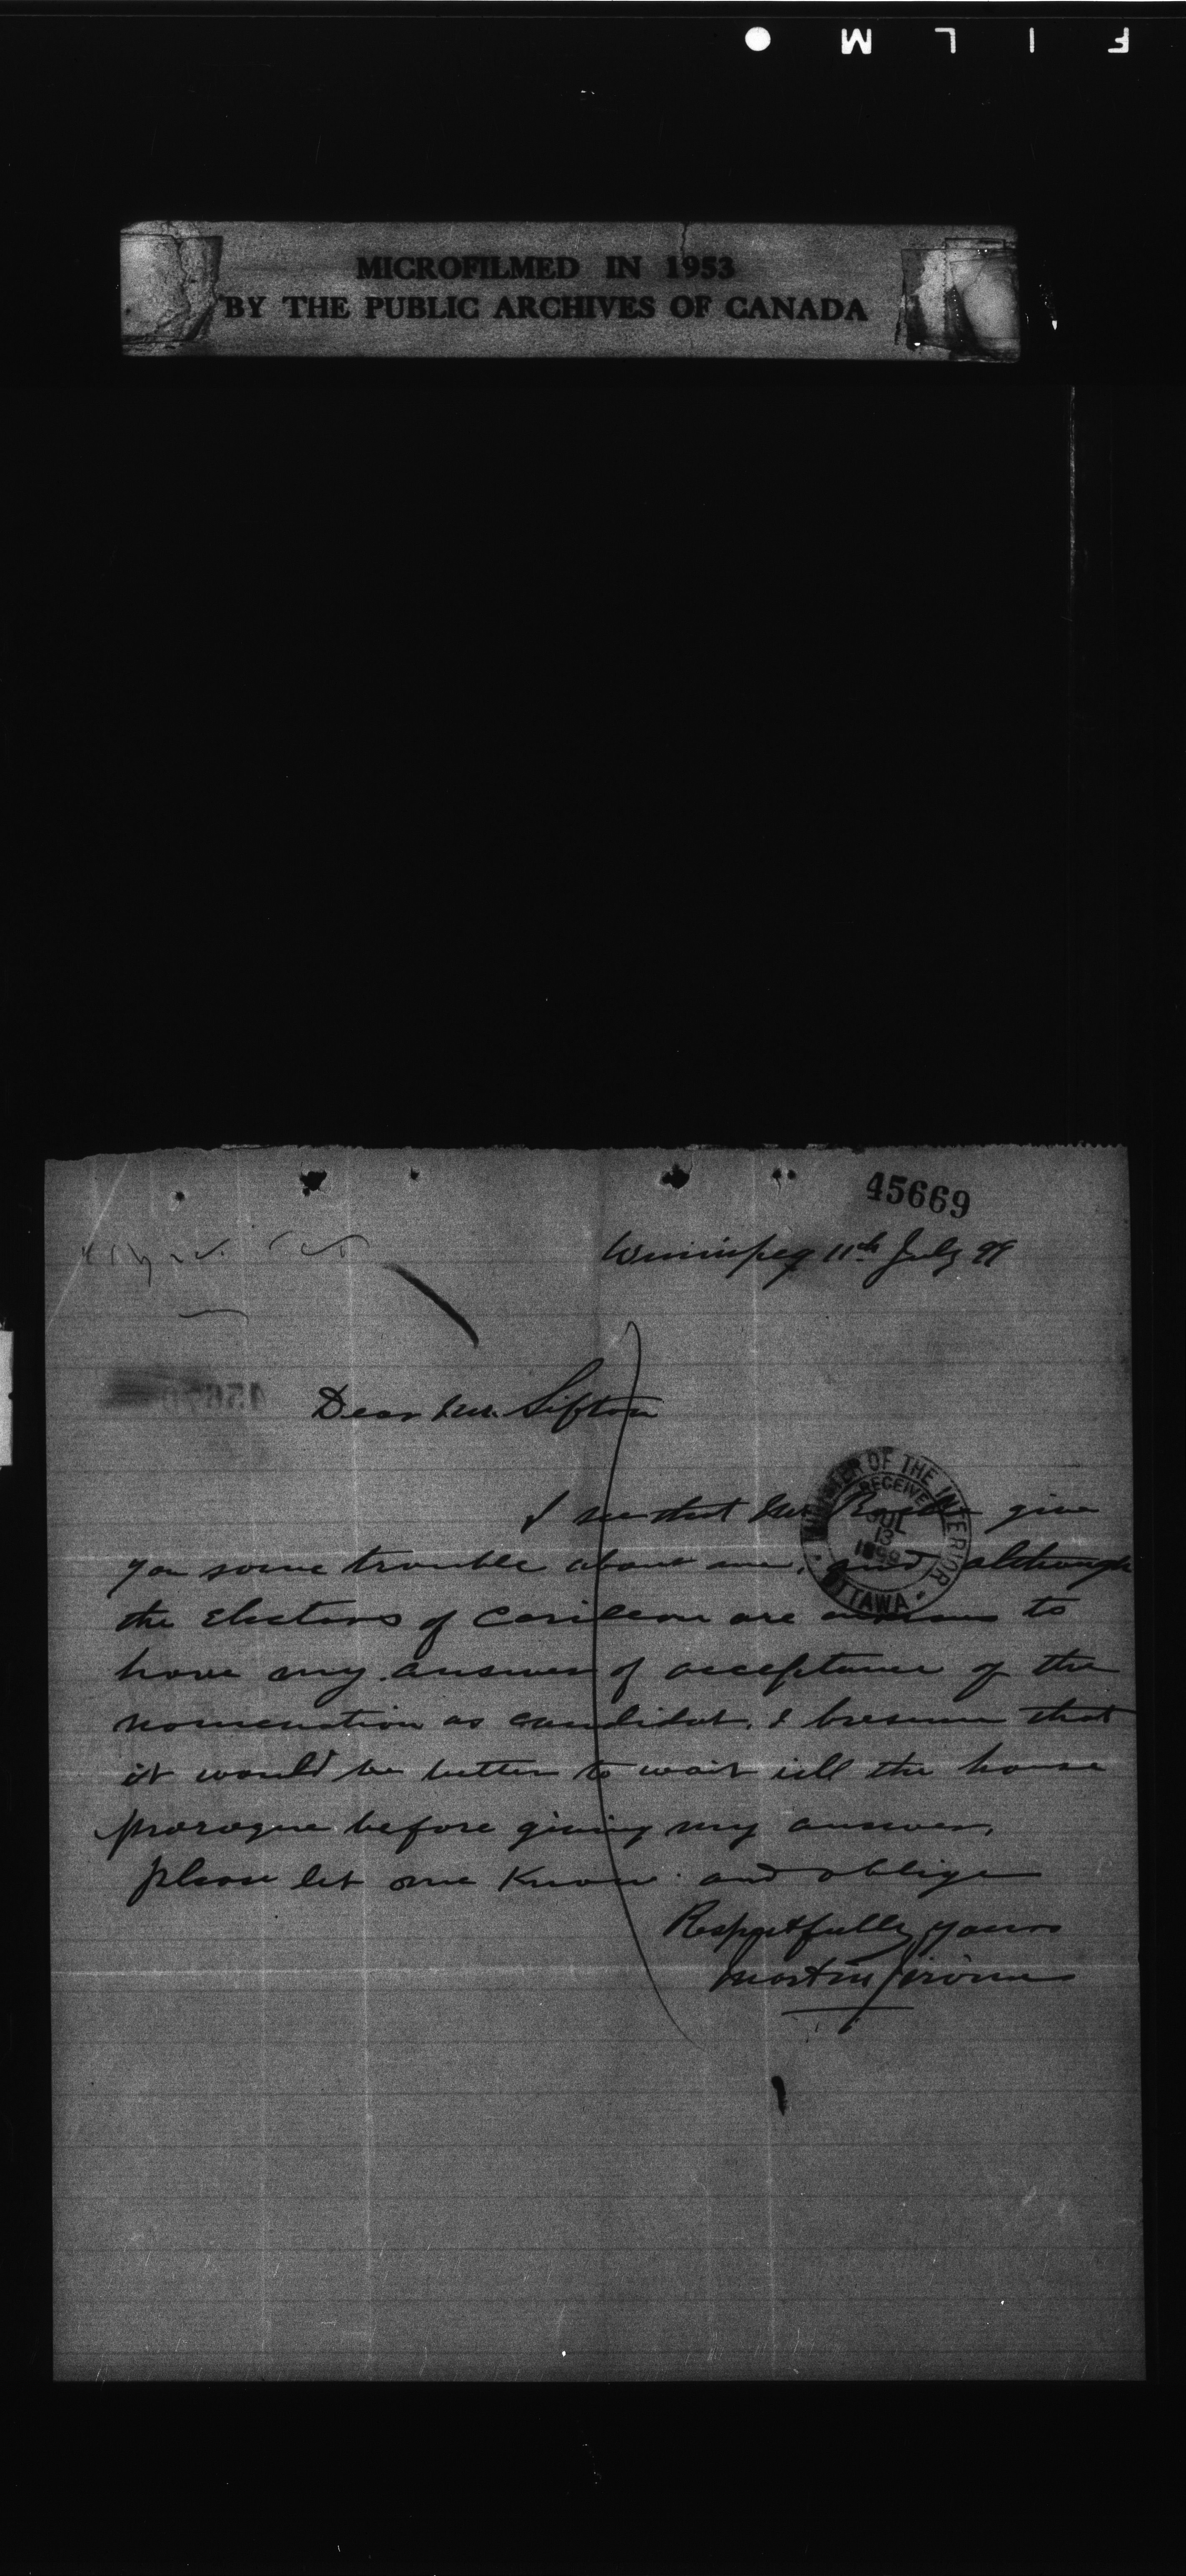 FILM
MICROFILMED IN 1953
BY THE PUBLIC ARCHIVES OF CANADA
45669
Winnipeg 11th July 99
Dear Mr. Sifton
I see that Mr give
you some trouble about me, and although
the Electors of Carileon are anxious to
have my answer of acceptance of the
nomenation as candidat. I presume that
it would be better to wait till the house
prorogue before giving my answer,
please let me Know and oblige
Respectfully yours
Martin Jérome
MINISTER OF THE INTERIOR
RECEIVED
JUL
13
1899
OTTAWA